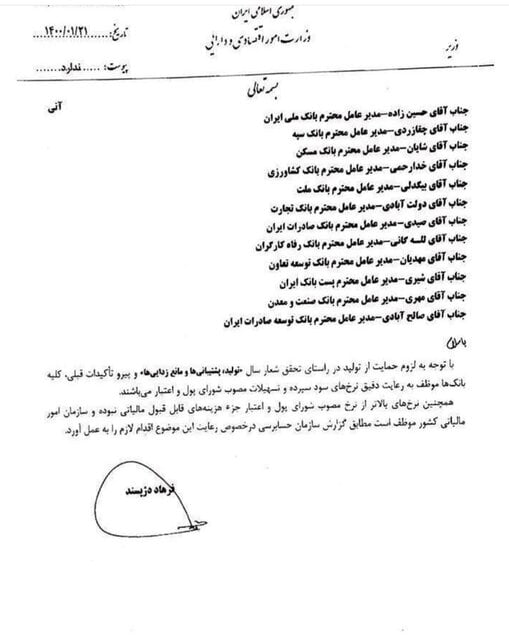 جمهوری اسلامی ایران
وزارت امور اقتصادی و دارایی
تاریخ:......۱۴۰۰/۰۱/۲۱
وزیر
پیوست: ..... ندارد.......
بسمه تعالی
آنی
جناب آقای حسین زاده–مدیر عامل محترم بانک ملی ایران
جناب آقای چقازردی–مدیر عامل محترم بانک سپه
جناب آقای شایان–مدیر عامل محترم بانک مسکن
جناب آقای خدارحمی–مدیر عامل محترم بانک کشاورزی
جناب آقای بیگدلی–مدیر عامل محترم بانک ملت
جناب آقای دولت آبادی–مدیر عامل محترم بانک تجارت
جناب آقای صیدی–مدیر عامل محترم بانک صادرات ایران
جناب آقای لله گانی–مدیر عامل محترم بانک رفاه کارگران
جناب آقای مهدیان–مدیر عامل محترم بانک توسعه تعاون
جناب آقای شیری–مدیر عامل محترم پست بانک ایران
جناب آقای مهری–مدیر عامل محترم بانک صنعت و معدن
جناب آقای صالح آبادی–مدیر عامل محترم بانک توسعه صادرات ایران
باسلام
با توجه به لزوم حمایت از تولید در راستای تحقق شعار سال «تولید، پشتیبانی‌ها و مانع زدایی‌ها» و پیرو تأکیدات قبلی، کلیه
بانک‌ها موظف به رعایت دقیق نرخ‌های سود سپرده و تسهیلات مصوب شورای پول و اعتبار می‌باشند.
همچنین نرخ‌های بالاتر از نرخ مصوب شورای پول و اعتبار جزء هزینه‌های قابل قبول مالیاتی نبوده و سازمان امور
مالیاتی کشور موظف است مطابق گزارش سازمان حسابرسی درخصوص رعایت این موضوع اقدام لازم را به عمل آورد.
فرهاد دژپسند